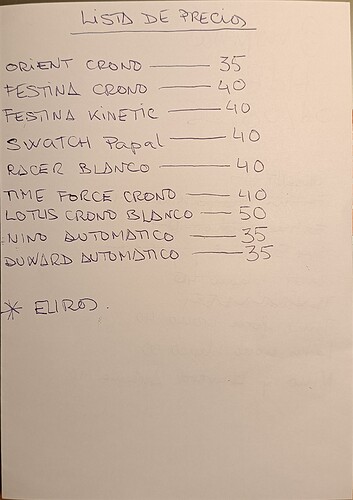 LISTA DE PRECIOS
ORIENT CRONO —— 35
FESTINA CRONO —— 40
FESTINA KINETIC —— 40
SWATCH Papal —— 40
RACER BLANCO —— 40
TIME FORCE CRONO —— 40
LOTUS CRONO BLANCO —— 50
NINO AUTOMATICO —— 35
DUWARD AUTOMATICO —— 35
* ELIROD.